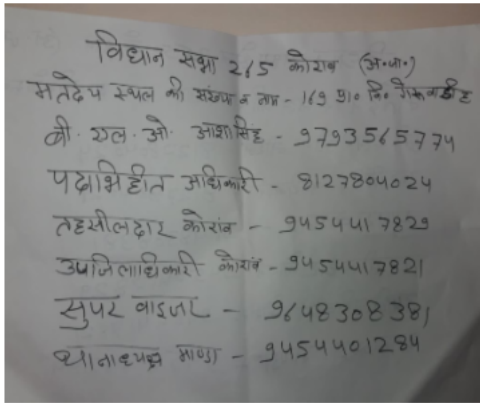 विधान सभा 265 कोरांव (अ॰जा॰)
मतदेय स्थल की संख्या व नाम - 169 प्रा॰ वि॰
बी॰ एल॰ ओ॰ आशा सिंह - 9793565774
पदाभिहीत अधिकारी - 8127804024
तहसीलदार कोरांव - 9454417829
उपजिलाधिकारी कोरांव - 9454417821
सुपर वाइजर - 9648308381
थानाध्यक्ष माण्डा - 9454401284